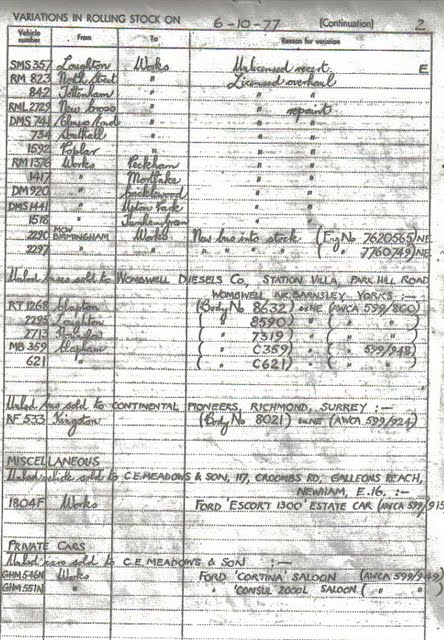 VARIATIONS IN ROLLING STOCK ON 6-10-77 (Continuation) 2
Vehicle number From To Reason for variation
SMS 357 Loughton Works Unlicensed recert. E
RM 823 North Street " Licensed overhaul
842 Tottenham " "
RML 2729 New Cross " " repaint
DMS 741 " "
734 Southall " "
1592 Poplar " "
RM 1376 Works Peckham "
1417 " Mortlake "
DM 920 " Cricklewood "
DMS 1441 " Upton Park "
1518 " Turnham Green "
2290 MCW BIRMINGHAM Works New bus into stock (Eng No 7620565) NE
2297 " " " ( " 7760749) NE
Unlicd buses sold to WOMBWELL DIESELS Co, STATION VILLA, PARK HILL ROAD
WOMBWELL NR. BARNSLEY YORKS :—
RT 1268 Clapton (Body No 8632) NE (AWCA 599/800)
2295 ( " 8590) " ( " )
2713 ( " 7319) " ( " )
MB 359 Clapham ( " C359) " ( " 599/948)
621 " ( " C621) " ( " )
Unlicd bus sold to CONTINENTAL PIONEERS, RICHMOND, SURREY :—
RF 533 Kingston (Body No 8021) NE (AWCA 599/924)
MISCELLANEOUS
Unlicd vehicle sold to C.E. MEADOWS & SON, 117, CROOMBS RD, GALLEONS REACH,
NEWHAM, E.16. :—
1804F Works FORD 'ESCORT 1300' ESTATE CAR (AWCA 599/915
PRIVATE CARS
Unlicd cars sold to C.E. MEADOWS & SON :—
GHM 546N Works FORD 'CORTINA' SALOON (AWCA 599/949)
GHM 551N " " 'CONSUL 2000L SALOON ( " " )